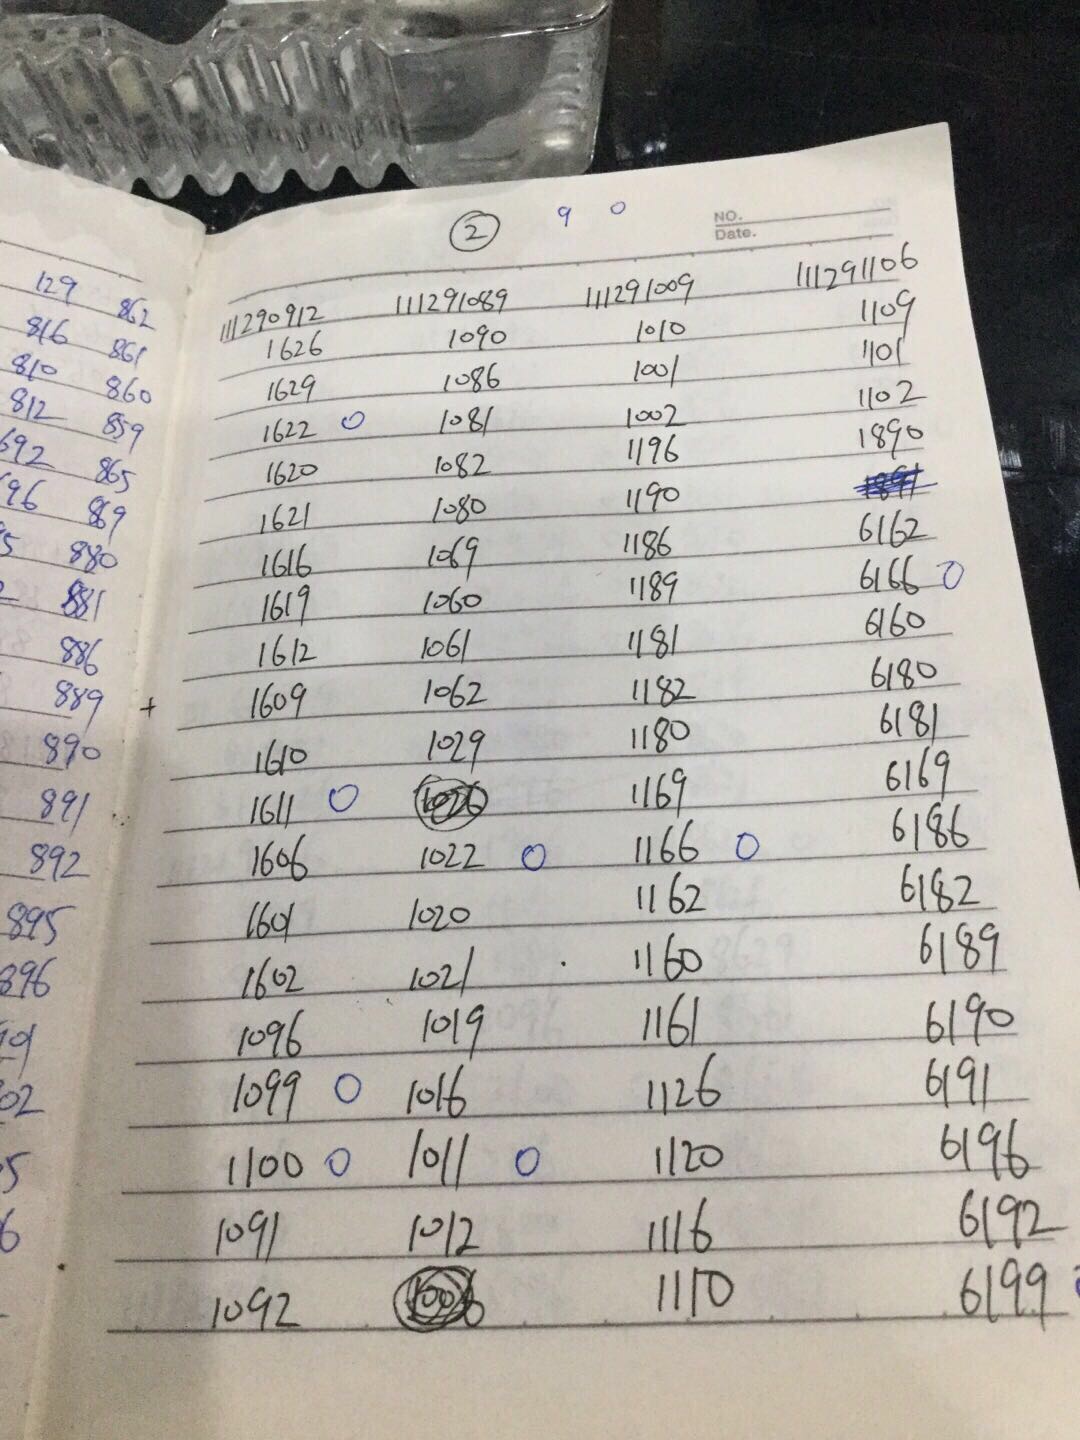 ② 9 0 NO.
Date.
111290912 111291089 111291009 111291106
1626 1090 1010 1109
1629 1086 1001 1101
1622 0 1081 1002 1102
1620 1082 1196 1890
1621 1080 1190
1616 1069 1186 6162
1619 1060 1189 6166 0
1612 1061 1181 6160
1609 1062 1182 6180
1610 1029 1180 6181
1611 0 1169 6169
1606 1022 0 1166 0 6186
1601 1020 1162 6182
1602 1021 1160 6189
1096 1019 1161 6190
1099 0 1016 1126 6191
1100 0 1011 0 1120 6196
1091 1012 1116 6192
1092 1110 6199
129 862
816 861
810 860
812 859
692 865
96 869
880
881
886
889
890
891
892
895
896